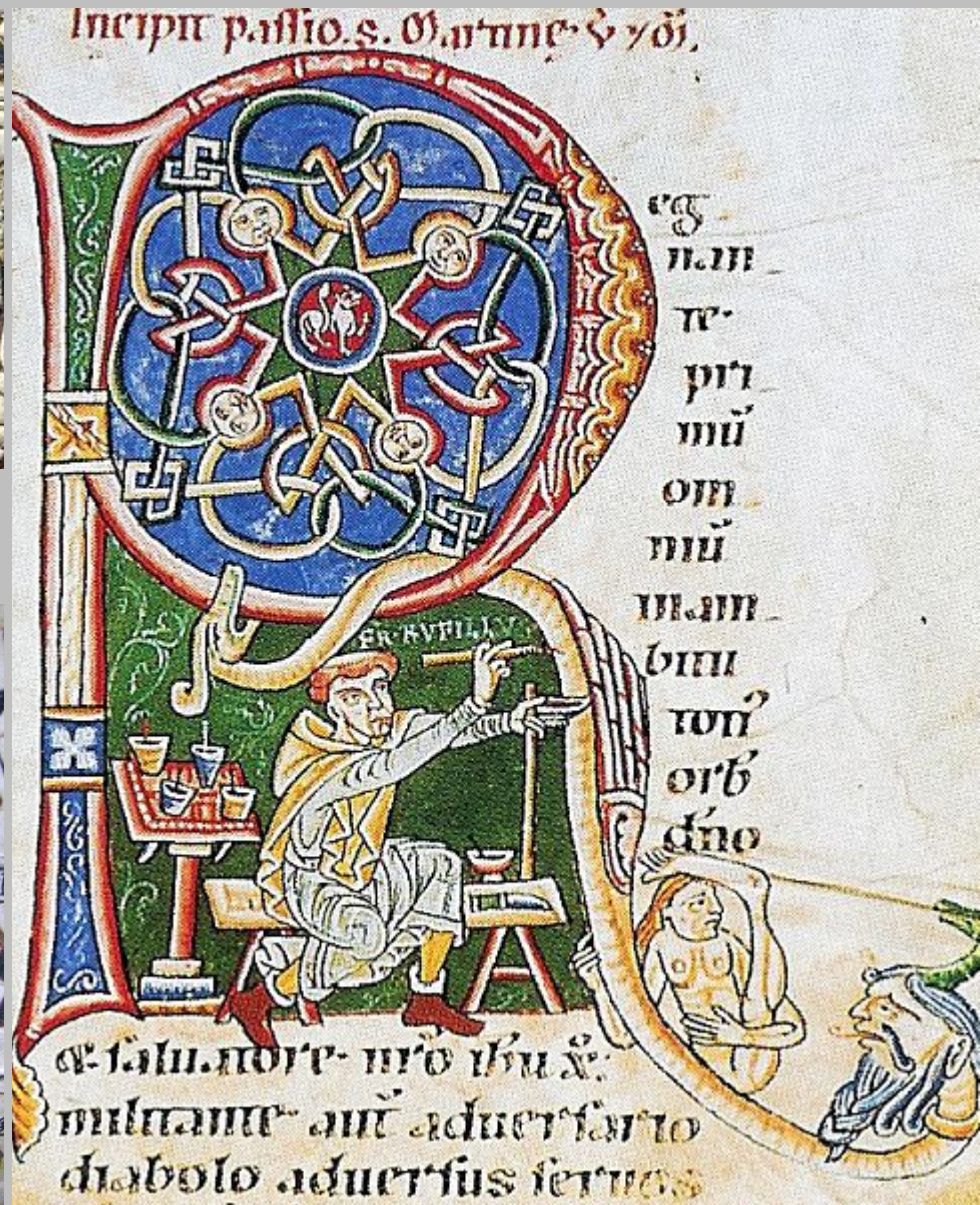 Incipit passio. s. Martine. v̄ ⁊ m̄.
R
eg
nan
te.
pri
mū
om
niū
nam
bitū
toti᷒
orb̄
dño
FR · RVFILLVS
& saluatore. nr̄o ih̄u xp̄o:
militante aut̄ aduersario
diabolo aduersus seruos